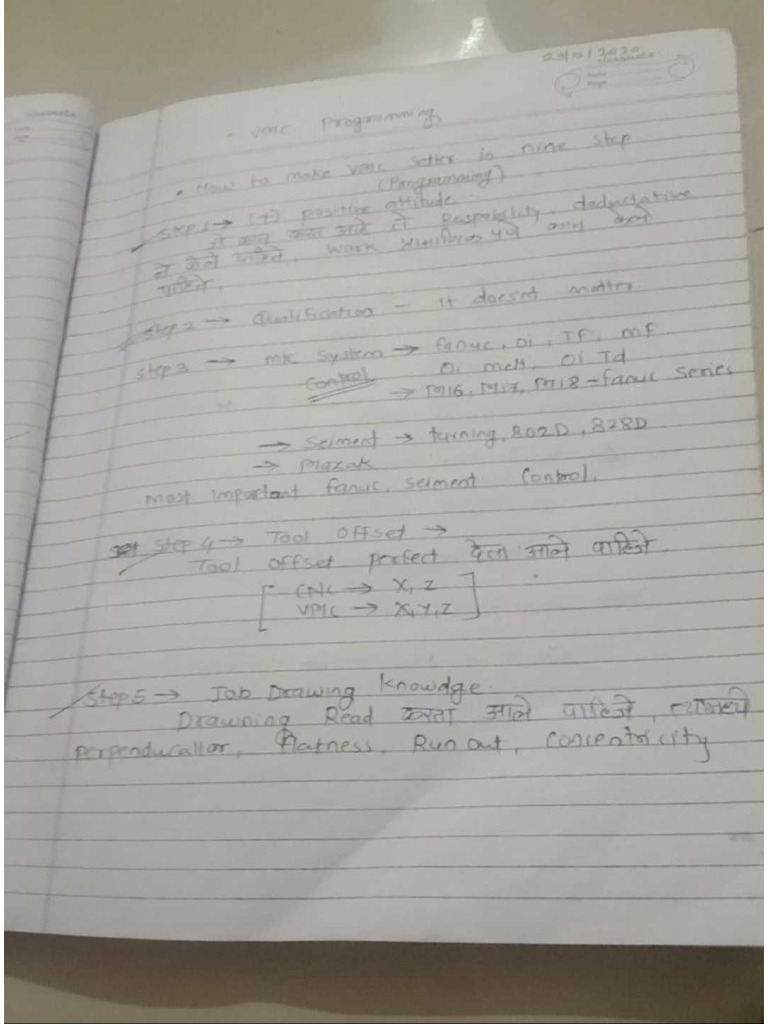 23/12/2020
classmate
- VMC Programming
• How to make VMC Setter in nine step
(Programming)
Step 1 → (+) positive attitude
जे काम करत आहे ते Resposbility, deducative
ने केले पाहिजे, work प्रामाणिक पणे काम केले
पाहिजे.
Step 2 → Qualification - it doesnt matter.
Step 3 → M/c System → fanuc, oi, TF, mf
Control Oi melt, Oi Td
→ M16, M17, M18 - fanuc series
→ Seiment → turning, 802D, 828D
→ Mazak
most important fanuc, seiment Control.
Step 4 → Tool Offset →
Tool Offset perfect देता आले पाहिजे.
[ CNC → X, Z ]
[ VMC → X, Y, Z ]
Step 5 → Job Drawing Knowdge.
Drawning Read करता आले पाहिजे, त्यामध्ये
perpenducallar, flatness, Run out, Concentricity